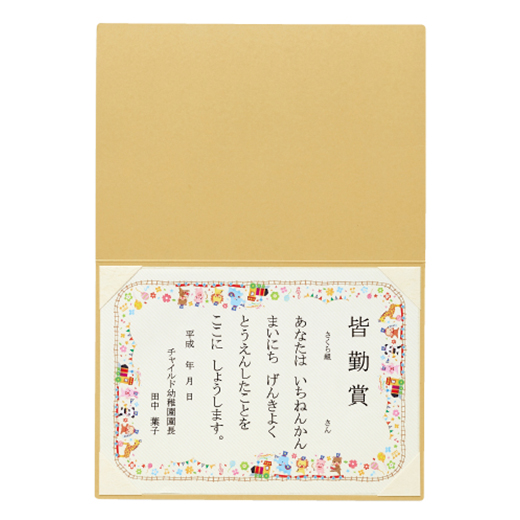 皆勤賞
さくら組
さん
あなたは いちねんかん
まいにち げんきよく
とうえんしたことを
ここに しょうします。
平成 年 月 日
チャイルド幼稚園園長
田中 葉子